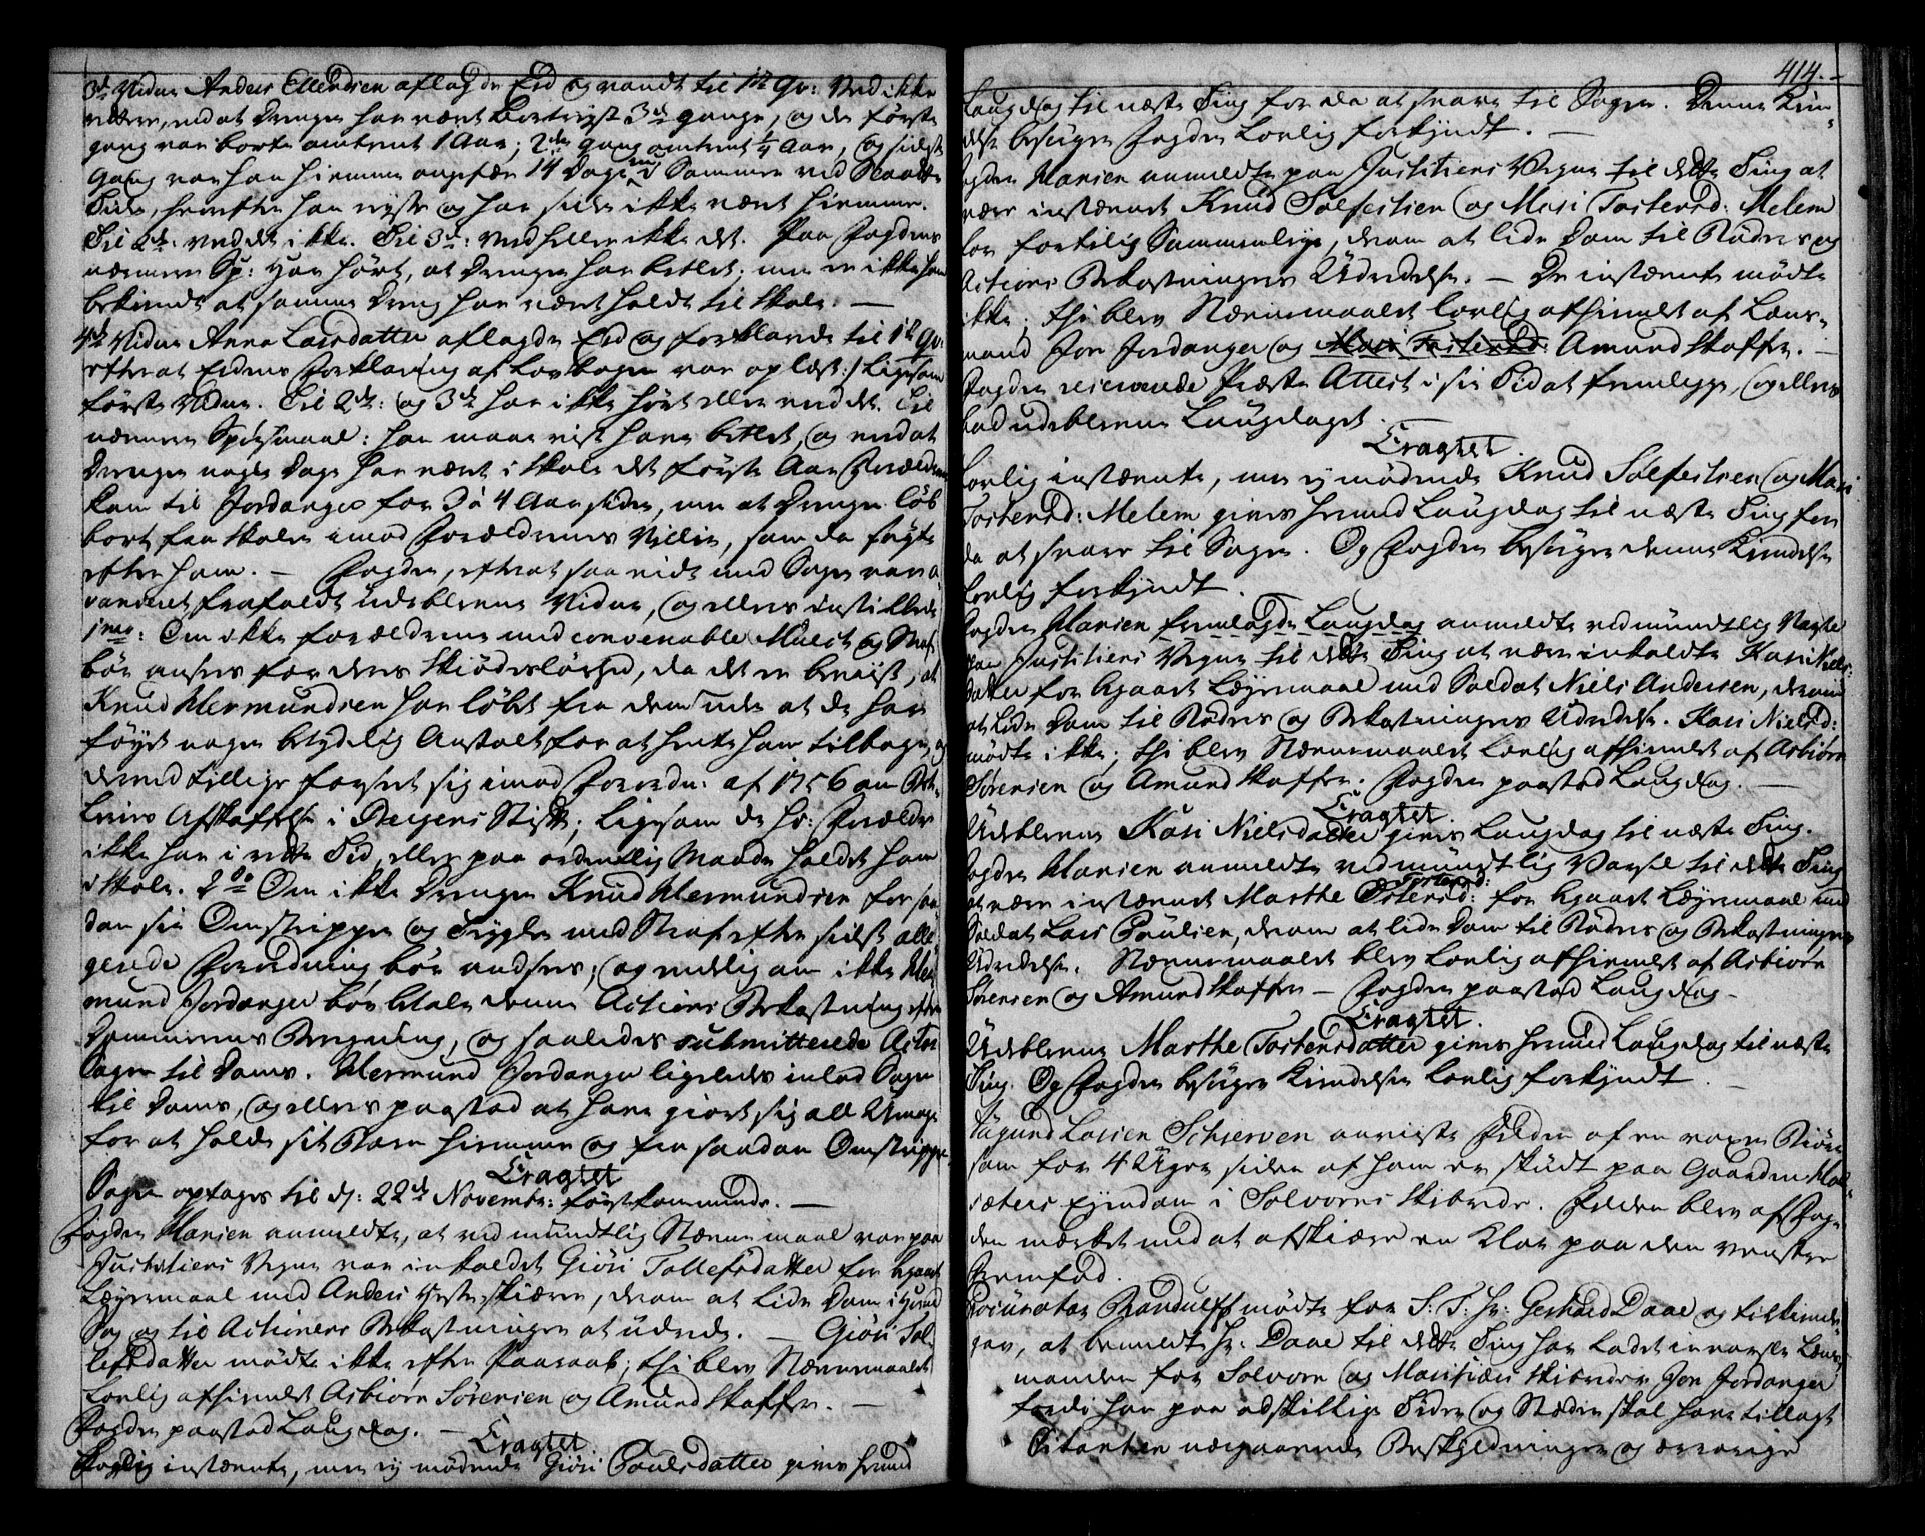 3de Vidne Anders Ellendsen aflagde Eed og vandt til 1te Qv: Ved ikke
videre, end at Drengen har været bortrejst 3de gange, og de første
gang var borte omtrent 1 Aar, 2den gang omtrent 1/4 Aar, og sidste
gang var han hiemme ongefær 14 Dage i Sommer ved Slaatte
Tider, hvorefter han rejste og har siden ikke været hiemme.
Til 2de: veed det ikke. Til 3de: veed heller ikke det. Paa Fogdens
nærmere Sp: Har hørt, at Drengen har betlet, men er ikke ham
bekiendt at samme Dreng har været holdt til Skole. —
4de Vidne Anna Larsdatter aflagde Eed og forklarede til 1te Qv:
efterat Eedens Forklaring af Lovbogen var oplæst :/ Ligesom
første Vidne. Til 2de: og 3de har ikke hørt eller veed det. Til
nærmere Spørsmaal: han maae vist have betlet, og veed at
Drengen nogle Dage har været i Skole det første Aar Forældrene
kom til Jordanger for 3 à 4 Aar siden, men at Drengen løb
bort fra Skolen imod Forældrenes Villie, som da søgte
efter ham. — Fogden, efterat saa vidt med Sagen var a-
vanceret frafaldt udeblevne Vidner, og ellers indstillede
1mo: Om ikke forældrene med convenable Mulct og Straf
bør ansees for deres Skiødesløshed, da det er beviist, at
Knud Hermundsen har løbet fra dem uden at de har
føyet nogen betydelig Anstalt for at hente ham tilbage, og
derved tillige forseet sig imod Forordn: af 1756 om Bet-
leres Afskaffelse i Bergens Stift; Ligesom de hr: Forældre
ikke har i rette Tid, eller paa ordentlig Maade holdet ham
i Skole. 2do Om ikke Drengen Knud Hermundsen for saa-
dan sin Omstrippen og Tryglen med Straf efter sidst alle-
gerede Forordning bør ansees; og endelig om ikke Her-
mund Jordanger bør betale denne Actions Bekostning efter
Dommerens Beregning, og saaledes submitterede Actor
Sagen til Doms. Hermund Jordanger ligeledes inlod Sagen
til Doms, og ellers paastod at have giort sig all Umage
for at holde sit Barn hiemme og fra saadan Omstrippen
Eragtet
Sagen optages til d: 22de Novembr: førstkommende. —
Fogden Hansen anmeldte, at ved mundtlig Stævnemaal var paa
Justitiens Vegne var indkaldet Giøri Tollefsdatter for begaaet
Leyermaal med Anders Hesteskiærer, derom at lide Dom i hvad
Sag og til Actionens Bekostninger at udrede. — Giøri Tol-
lefsdatter mødte ikke efter Paaraab; thi blev Stævnemaalet
Lovlig afhiemlet Asbiørn Sørensen og Amund Skaffer. —
Fogden paastod Laugdag. —
Eragtet.
Lovlig instævnte, men ej mødende Giøri Poulsdatter gives hermed
414.
Laugdag til næste Ting for da at svare til Sagen. Denne Kien-
delse besørger Fogden Lovlig forkyndt. —
Fogden Hansen anmeldte paa Justitiens Vegne til dette Ting at
være instævnet Knud Solfestsen og Mari Torstensd: Melem
for fortilig Sammenleye, derom at lide Dom til Bøders og
Actions Bekostningers Udredelse. — De instævnte mødte
ikke; thi blev Stævnemaalet lovlig afhiemlet af Læns-
mand Jon Jordanger og Amund Skaffer. —
Fogden reserverede Præste Attest i sin Tid at fremlegge, og ellers
bad udeblevne Laugdaget
Eragtet.
Lovlig instævnte, men ej mødende Knud Solfestsen og Mari
Torstensd: Melem gives hermed Laugdag til næste Ting for
da at svare til Sagen. Og Fogden besørger denne Kiendelse
lovlig forkyndt.
Fogden Hansen fremlagde Laugdag anmeldte ved mundtlig Varsel
paa Justitiens Vegne til dette Ting at være indkaldte Kari Niels-
datter for begaaet Leyermaal med Soldat Niels Andersen, derom
at lide Dom til Bøders og Bekostningers Udredelse. Kari Nielsd:
mødte ikke; thi blev Stævnemaalet Lovlig afhiemlet af Asbiørn
Sørensen og Amund Skaffer. Fogden paastod Laugdag. —
Eragtet.
Udeblevne Kari Nielsdatter gives Laugdag til næste Ting.
Fogden Hansen anmeldte ved mundtlig Varsel til dette Ting
Torstensd:
at være instævnet Marthe Ostensd: for begaaet Leyermaal med
Soldat Lars Poulsen, derom at lide Dom til Bøders og Bekostningers
Udredelse. Stævnemaalet blev Lovlig afhiemlet af Asbiørn
Sørensen og Amund Skaffer — Fogden paastod Laugdag —
Eragtet.
Udeblevne Marthe Torstensdatter gives hermed Laugdag til næste
Ting. Og Fogden besørger Kiendelsen lovlig forkyndt. —
Aagund Larsen Schierven anviiste Felden af en voxen Biørn
som for 4 Uger siden af ham er skudt paa Gaarden Mol-
sæters Ejendom i Solvorns Skibrede. Felden blev af Fog-
den mærket med at afskiære en Kloe paa den venstre
fremfod.
Procurator Brandulff mødte for S: T: hr: Gerhard Daae og tilkiende-
gav, at bemeldte hr: Daae til dette Ting har ladet indvarsle Læns-
manden for Solvorn og Marifiære Skibreder Jon Jordanger
fordi han paa adskillige Tider og Stæder skal have tillagt
Citanten nærgaaende Beskyldninger og ærerørige